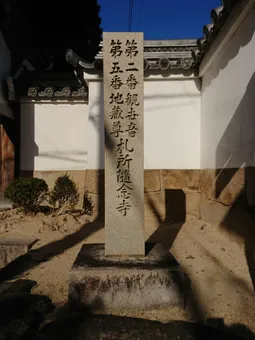 第二番観世音
第五番地蔵尊
札所隨念寺